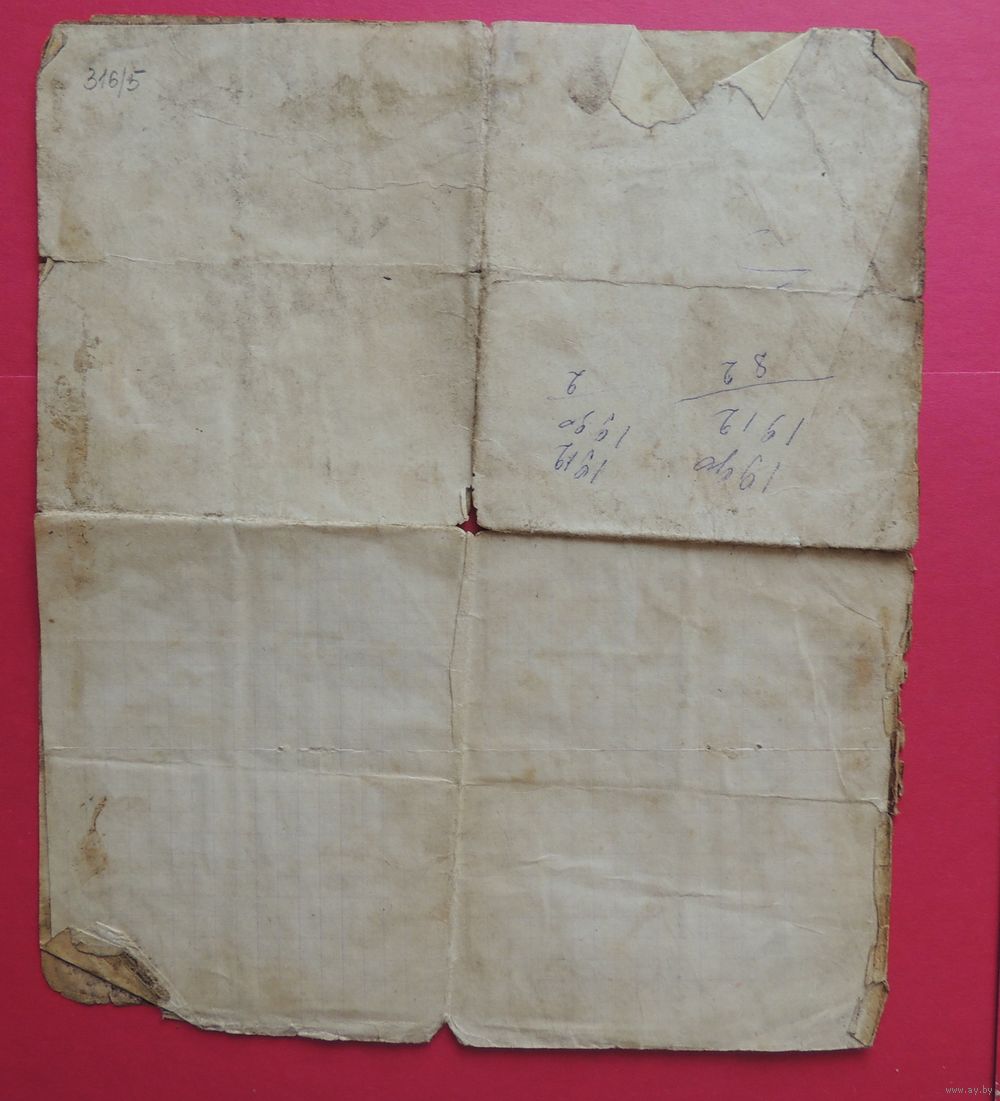 316/5
1990
1912
82
1912
1990
2
www.ay.by